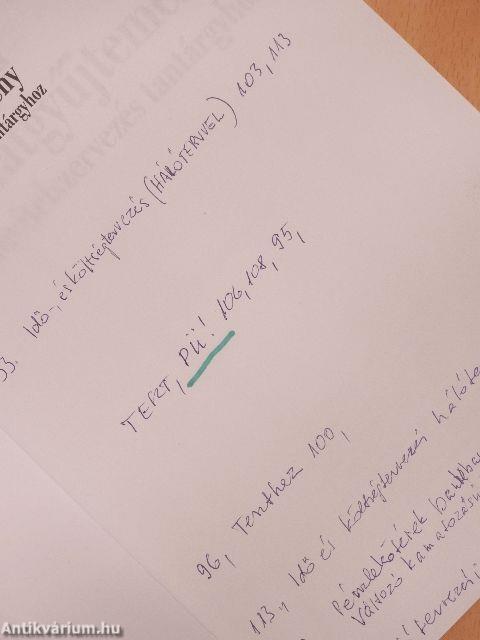 ny
tárgyhoz
33. Idő-, és költségtervezés (HÁLÓTERVVEL) 103, 113
TESZT, PÜ! 106, 108, 95,
96, Teszthez 100,
113., Idő és költségtervezés hálóte
Pénzlekötések bankba
Változó kamatozású
tervezési
Antikvárium.hu